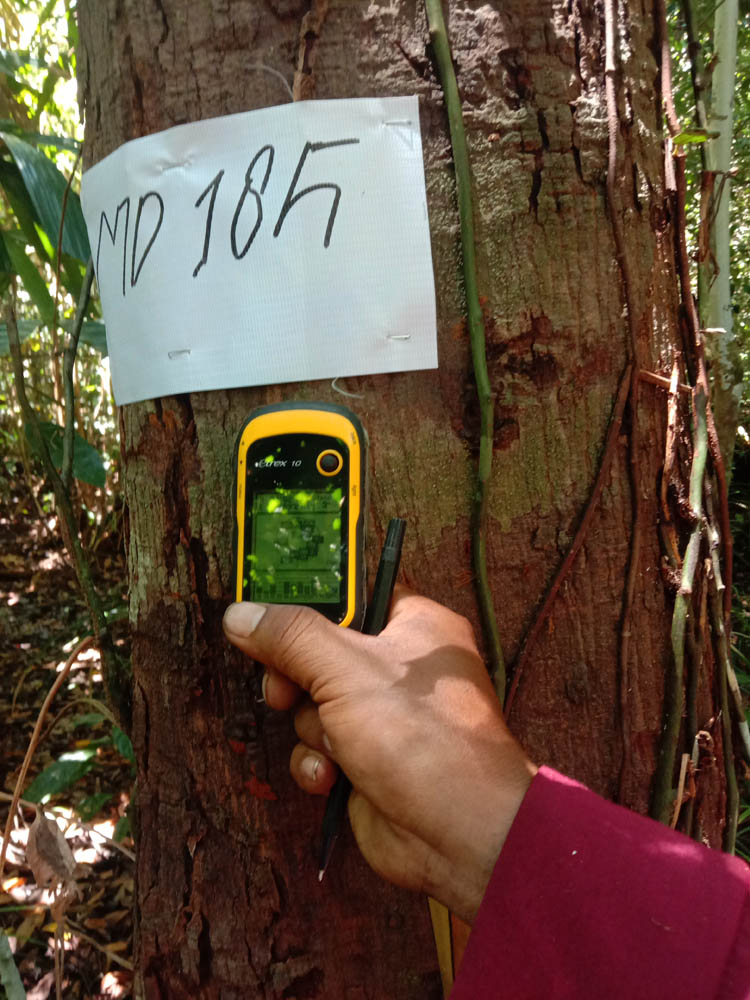 MD 185
etrex 10